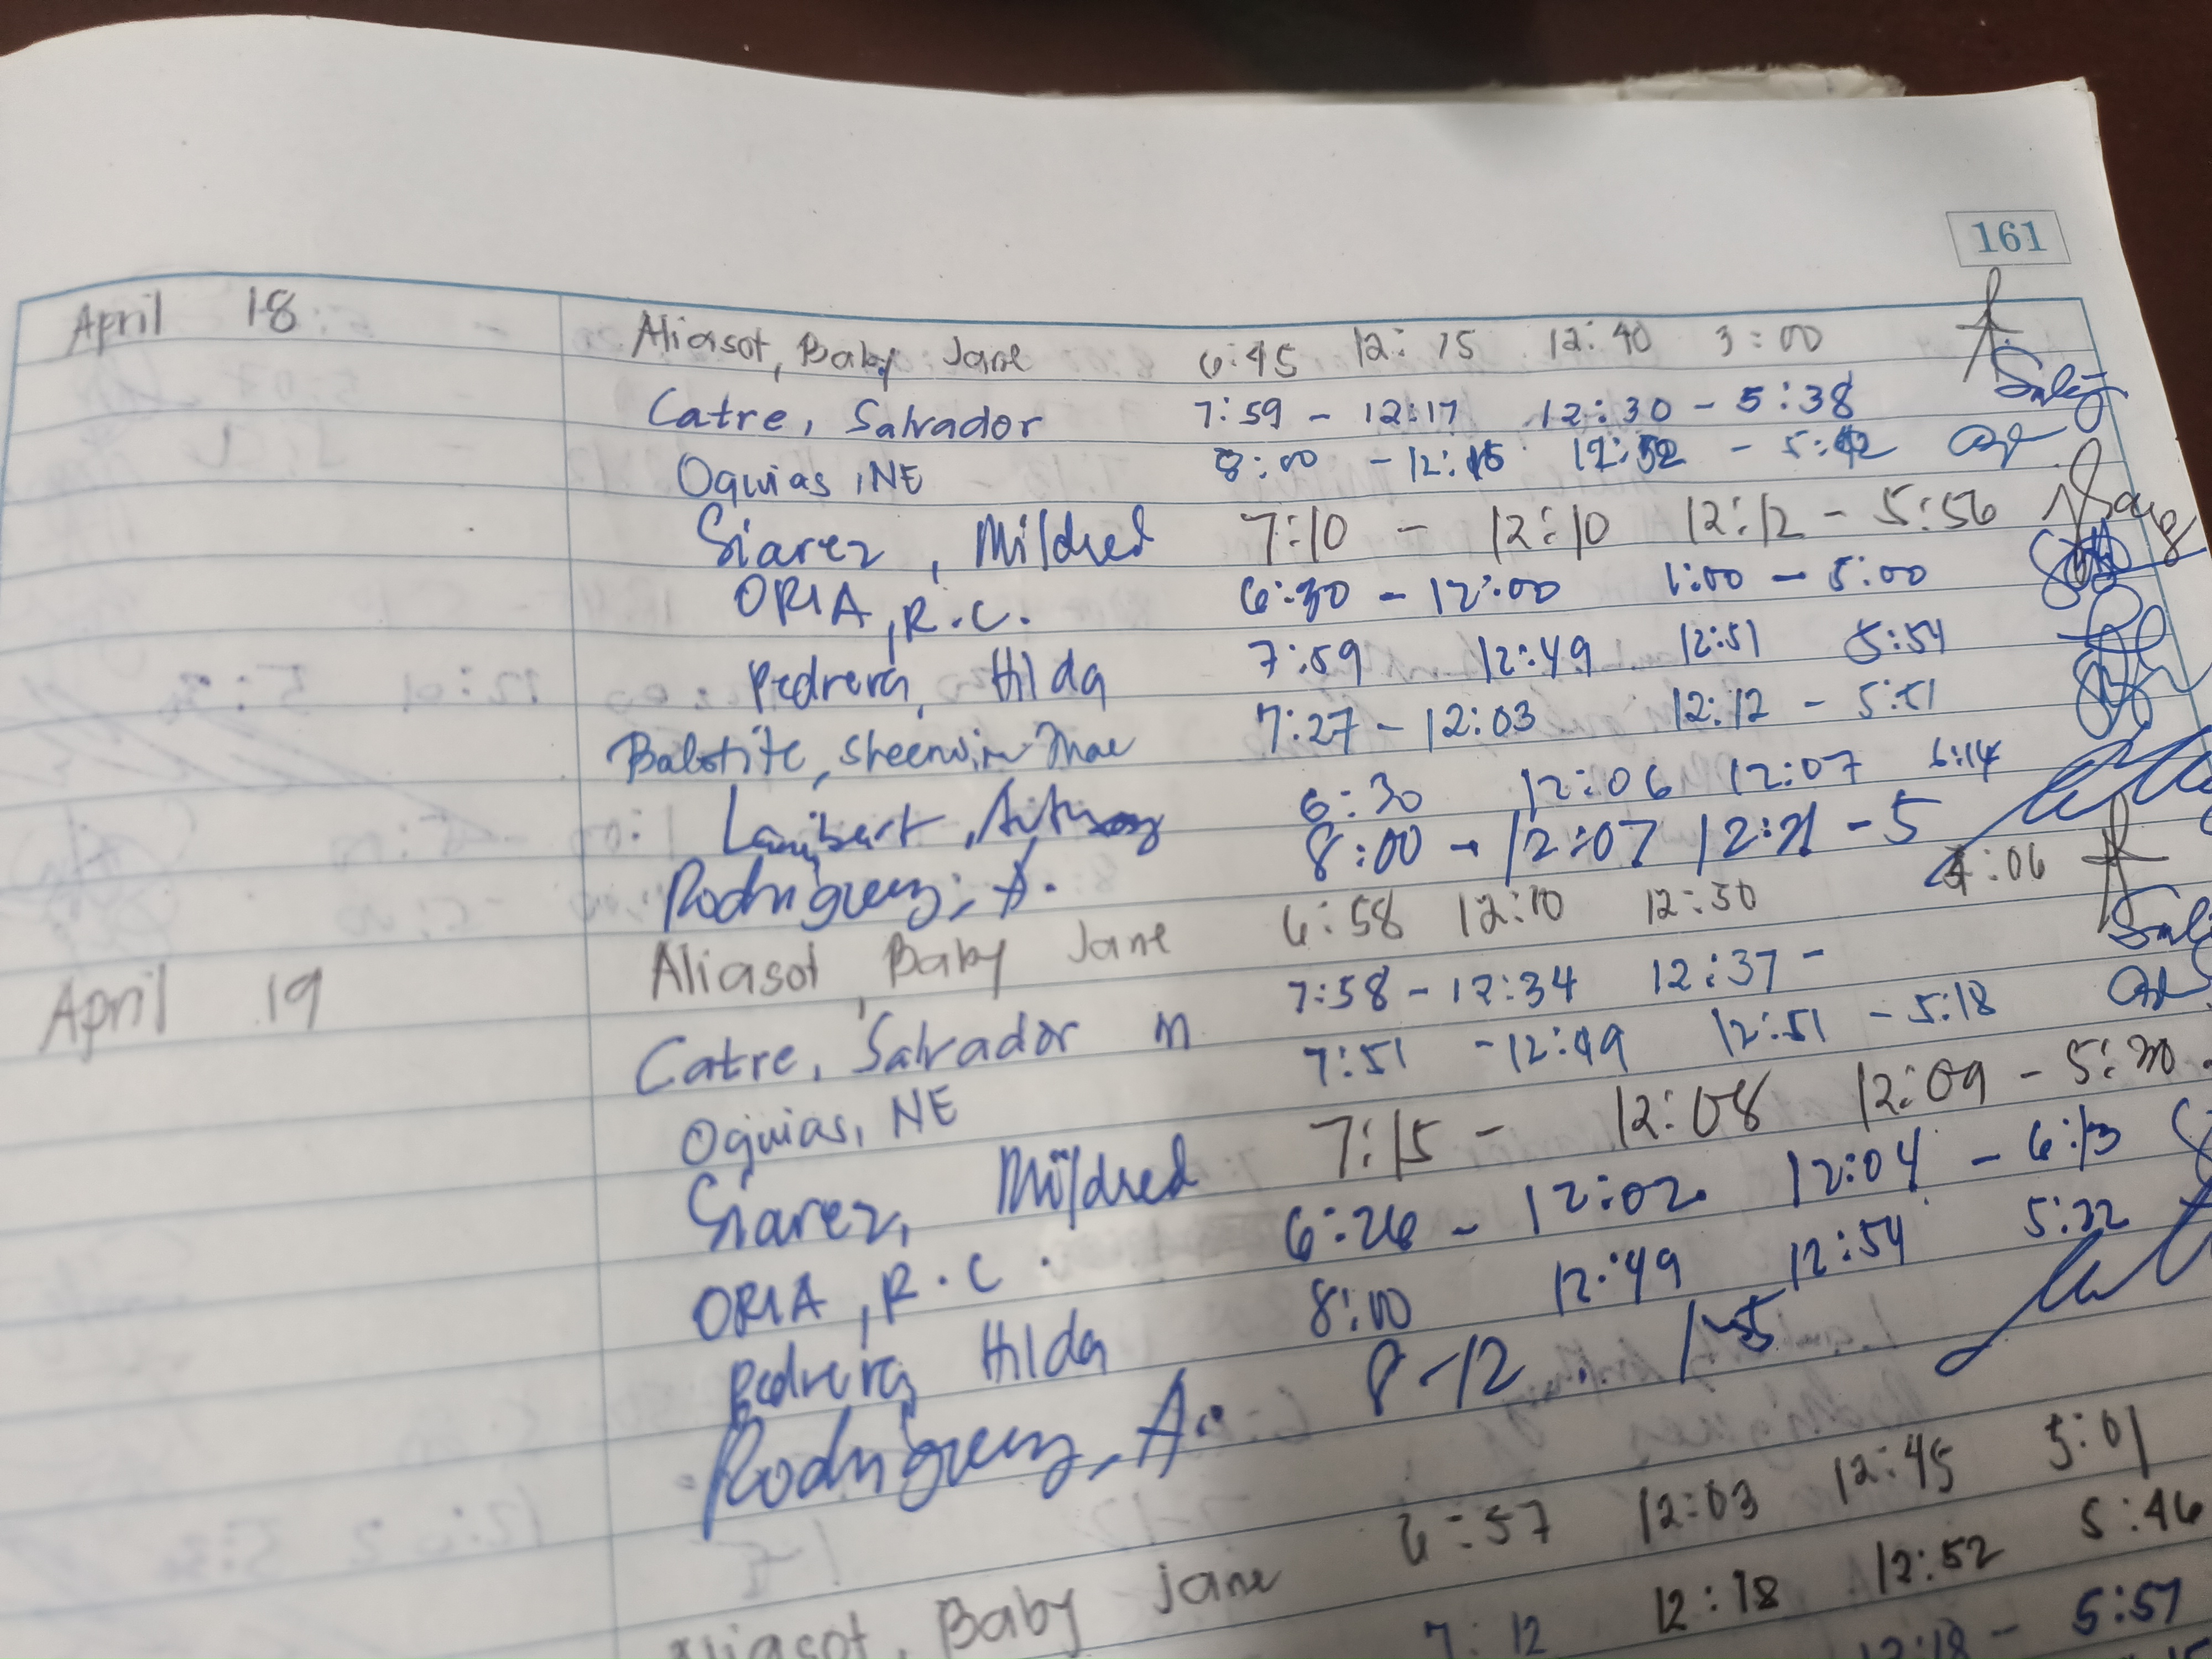 161
April 18 Aliasot, Baby Jane 6:45 12:15 12:40 3:00
Catre, Salvador 7:59 - 12:17 12:30 - 5:38
Oquias, NE 8:00 - 12:15 12:52 - 5:42
Siarez, Mildred 7:10 - 12:10 12:12 - 5:56
ORIA, R.C. 6:30 - 12:00 1:00 - 5:00
Pedrera, Hilda 7:59 12:49 12:51 5:54
Balotite, Sheenvin Mae 7:27 - 12:03 12:12 - 5:51
Lambert, Anthony 6:30 12:06 12:07 6:14
Rodriguez, A. 8:00 - 12:07 12:21 - 5
April 19 Aliasot, Baby Jane 6:58 12:10 12:50 4:06
Catre, Salvador M 7:58 - 12:34 12:37 -
Oquias, NE 7:51 - 12:49 12:51 - 5:18
Siarez, Mildred 7:15 - 12:08 12:09 - 5:30
ORIA, R.C. 6:26 - 12:02 12:04 - 6:13
Pedrera, Hilda 8:00 12:49 12:54 5:22
Rodriguez, A. 8-12 1-5
Aliasot, Baby Jane 6:57 12:03 12:45 5:01
7:12 12:18 12:52 5:46
12:18 - 5:57